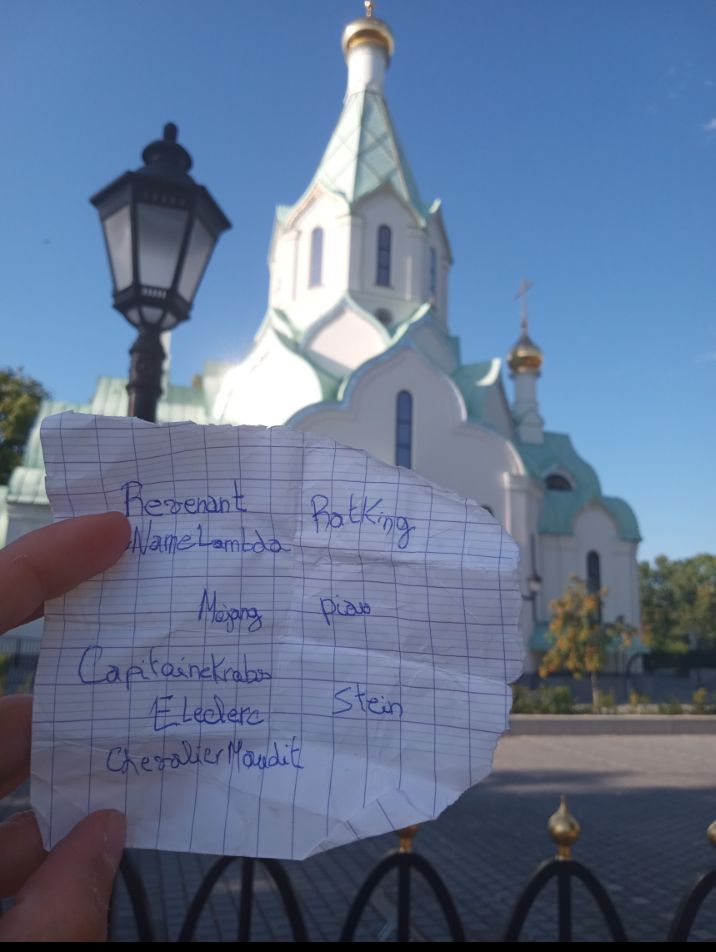 Revenant RatKing
NameLambda
Mojang piou
CapitaineKrabs
ELeclerc Stein
ChevalierMaudit